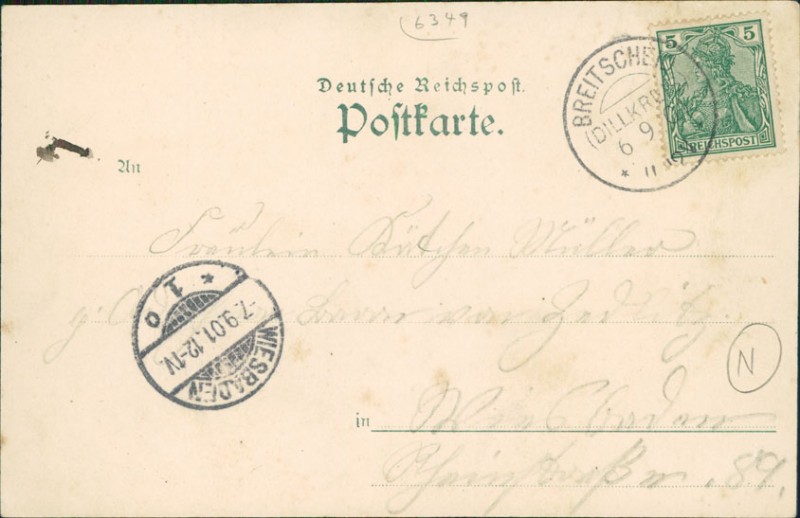 6349
5 5
REICHSPOST
BREITSCHE
(DILLKR
6 9
* 11
Deutsche Reichspost.
Postkarte.
An
Fräulein Kätchen Müller
von Zedlitz.
* 1 o
-7.9.01.12-1V.
WIESBADEN
N
in Wiesbaden
Rheinstraße 89.